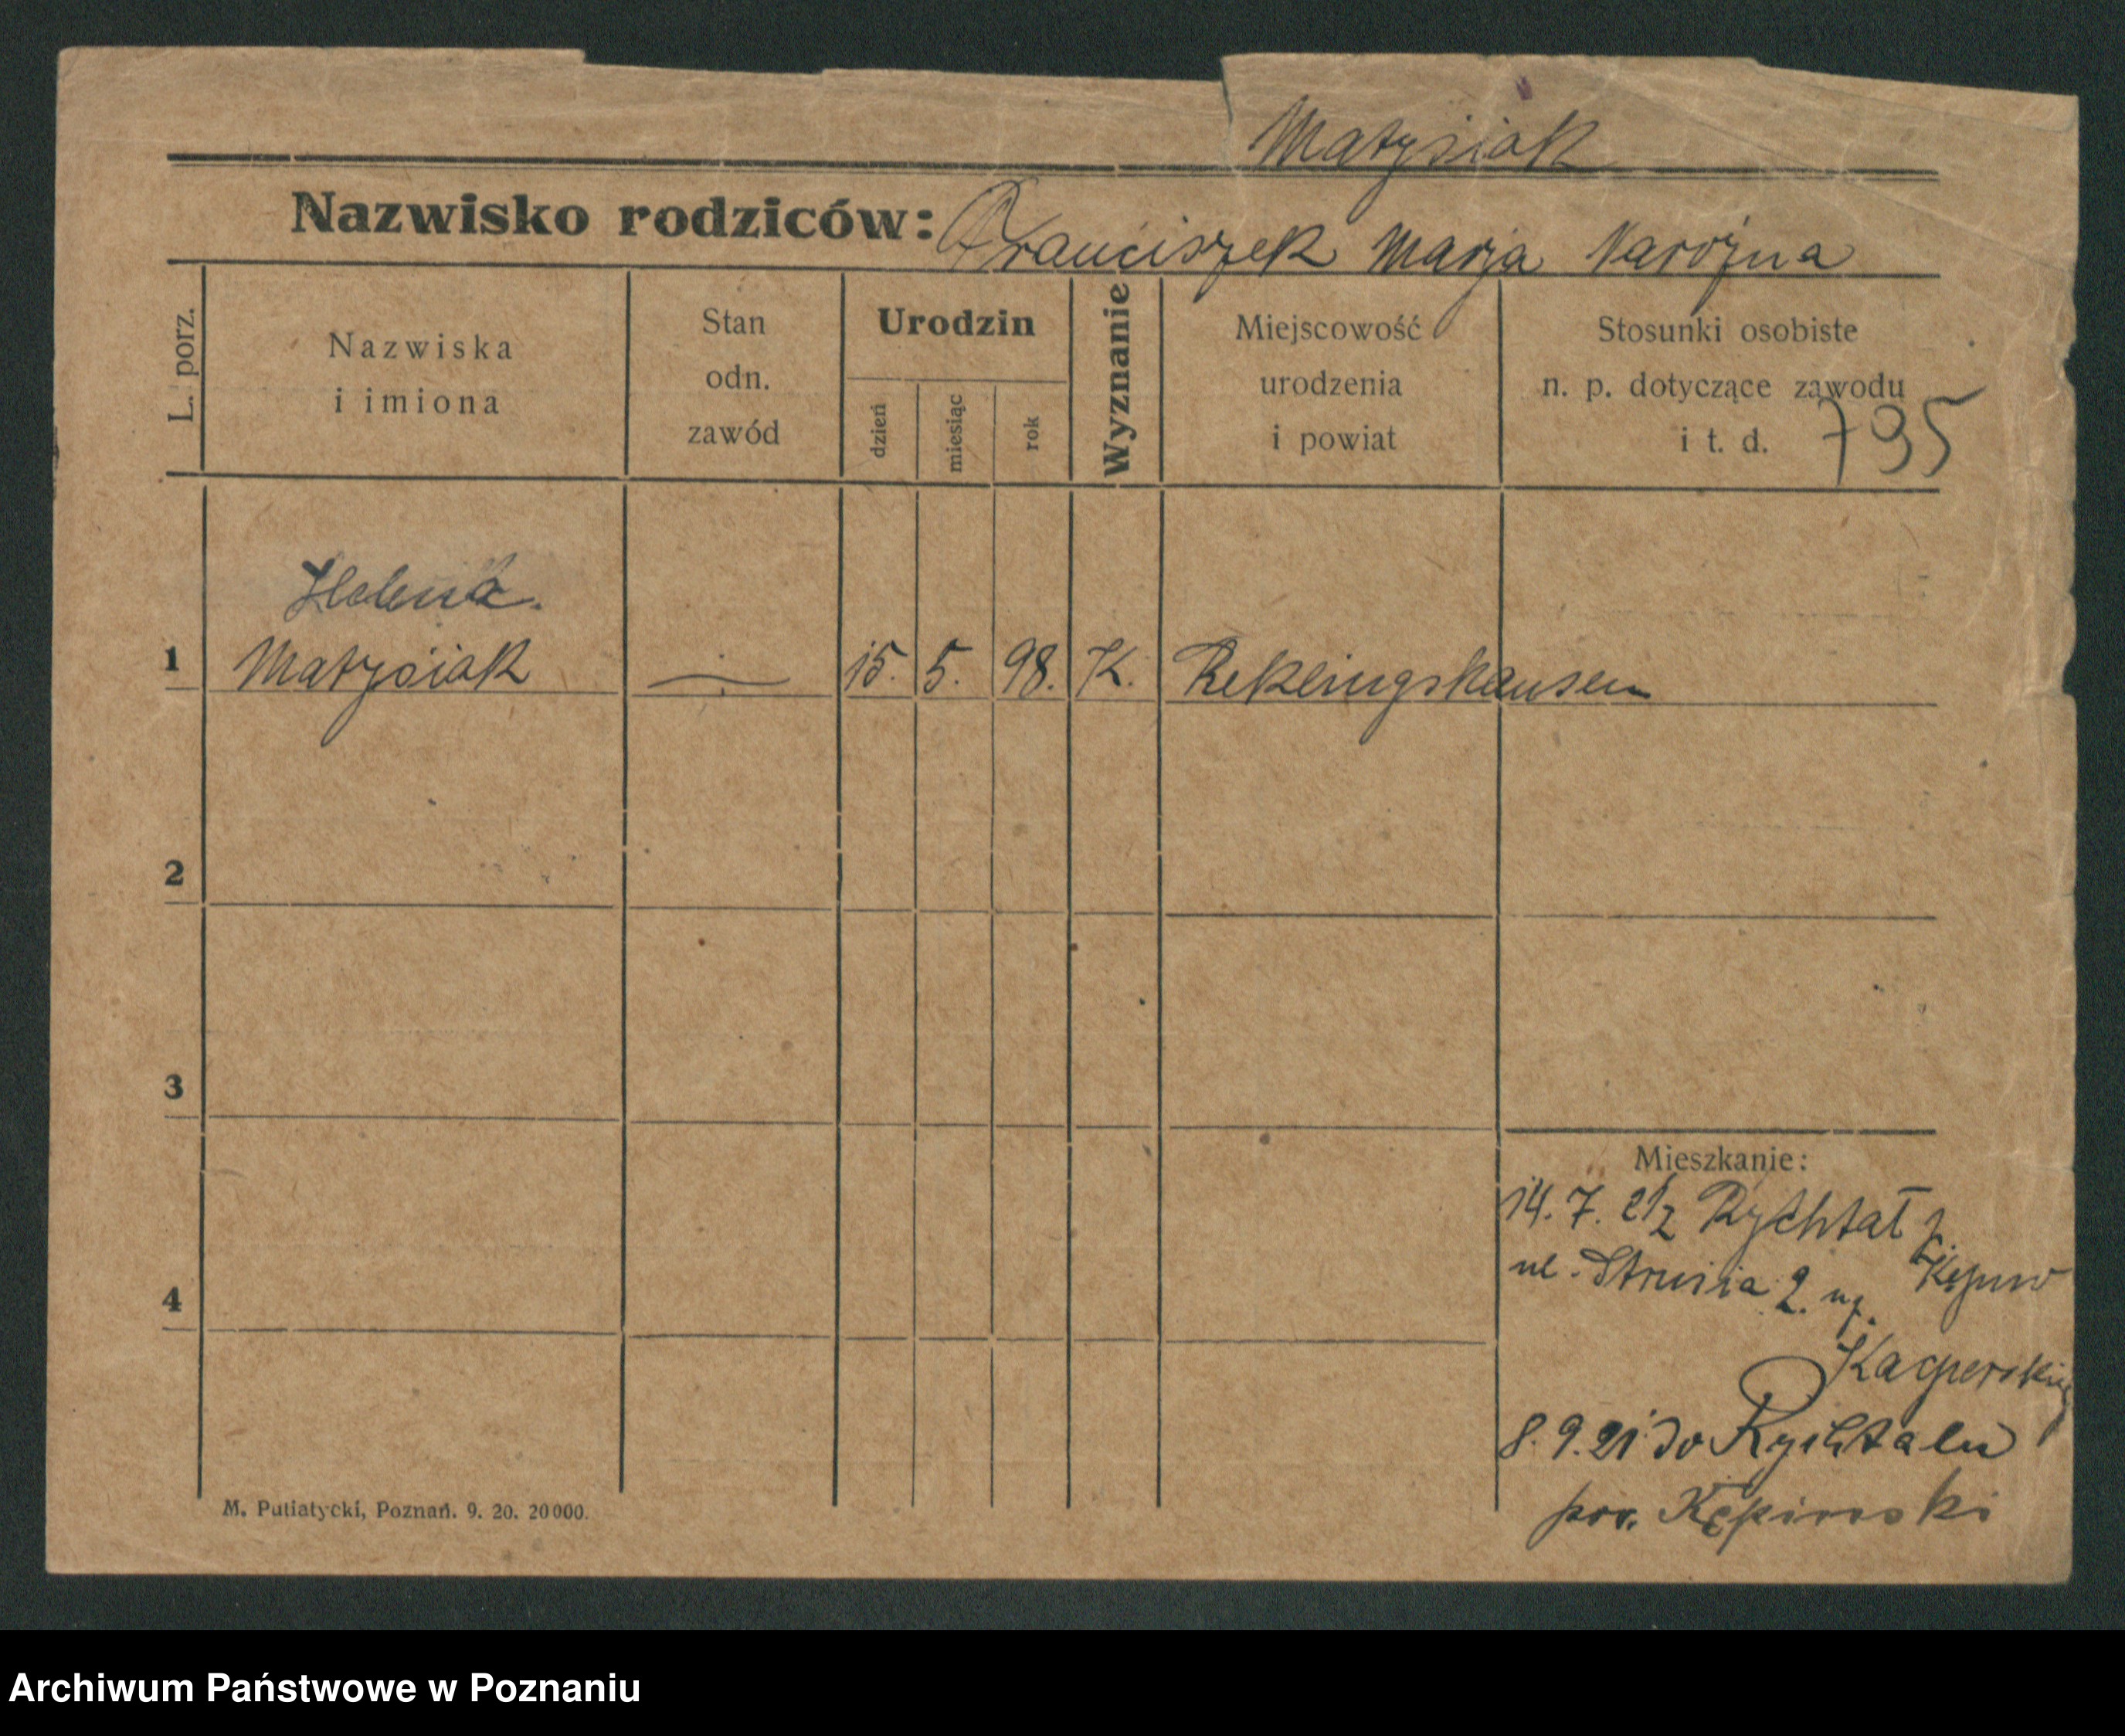 Matysiak
Nazwisko rodziców: Franciszek Marja Narożna
L. porz.
Nazwiska
i imiona
Stan
odn.
zawód
Urodzin
dzień
miesiąc
rok
Wyznanie
Miejscowość
urodzenia
i powiat
Stosunki osobiste
n. p. dotyczące zawodu
i t. d.
795
Helena
1 Matysiak 15. 5. 98. K. Reklingshausen
2
3
4
Mieszkanie:
14. 7. 21 z Rychtal p.
Kępno
ul. Strusia 2.
Kacperskiej
8. 9. 21 do Rychtalu
pow. Kępinski
M. Putiatycki, Poznań. 9. 20. 20000.
Archiwum Państwowe w Poznaniu